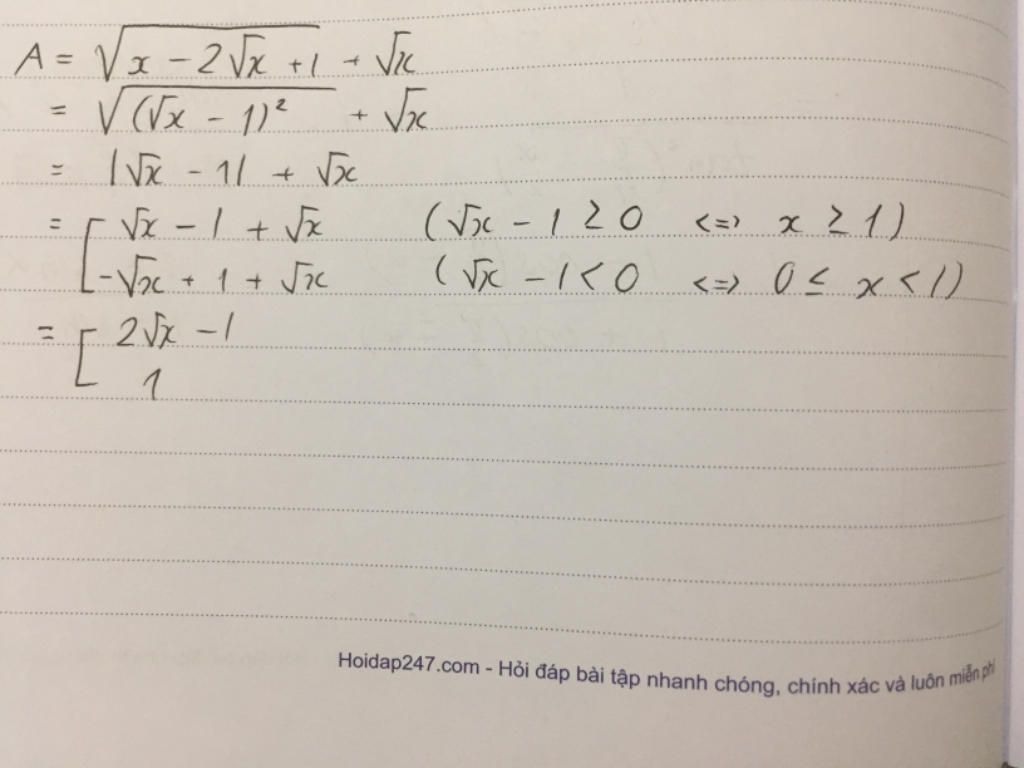 A = √(x - 2√x + 1) + √x
= √((√x - 1)²) + √x
= |√x - 1| + √x
= [ √x - 1 + √x (√x - 1 ≥ 0 <=> x ≥ 1)
-√x + 1 + √x (√x - 1 < 0 <=> 0 ≤ x < 1)
= [ 2√x - 1
1
Hoidap247.com - Hỏi đáp bài tập nhanh chóng, chính xác và luôn miễn phí